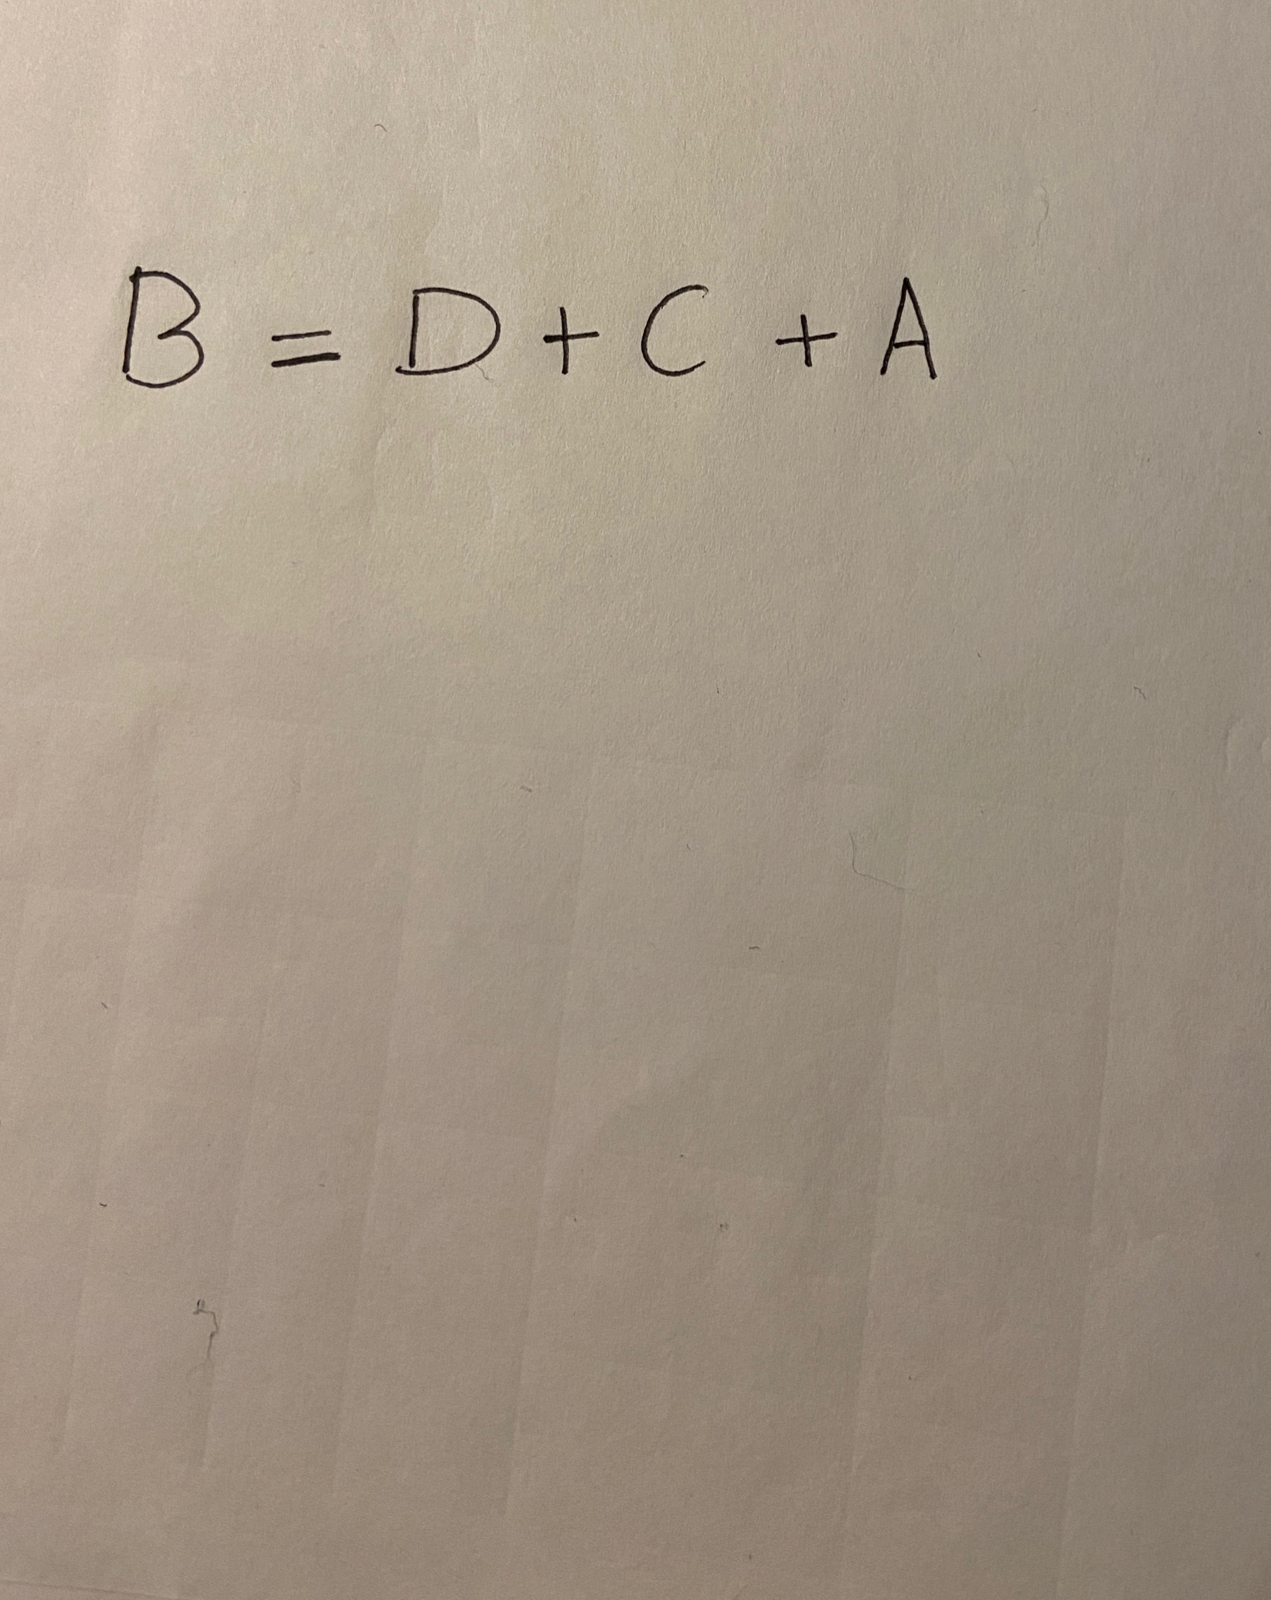 B = D + C + A